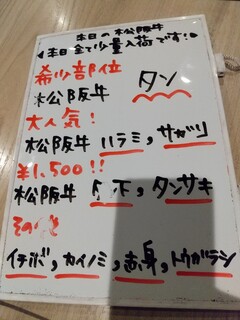 本日の松阪牛
本日全て少量入荷です!!
希少部位
松阪牛 タン
大人気!
松阪牛 ハラミ,サガリ
¥1,500!!
松阪牛 タンサキ
その他
イチボ,カイノミ,赤身,トウガラシ